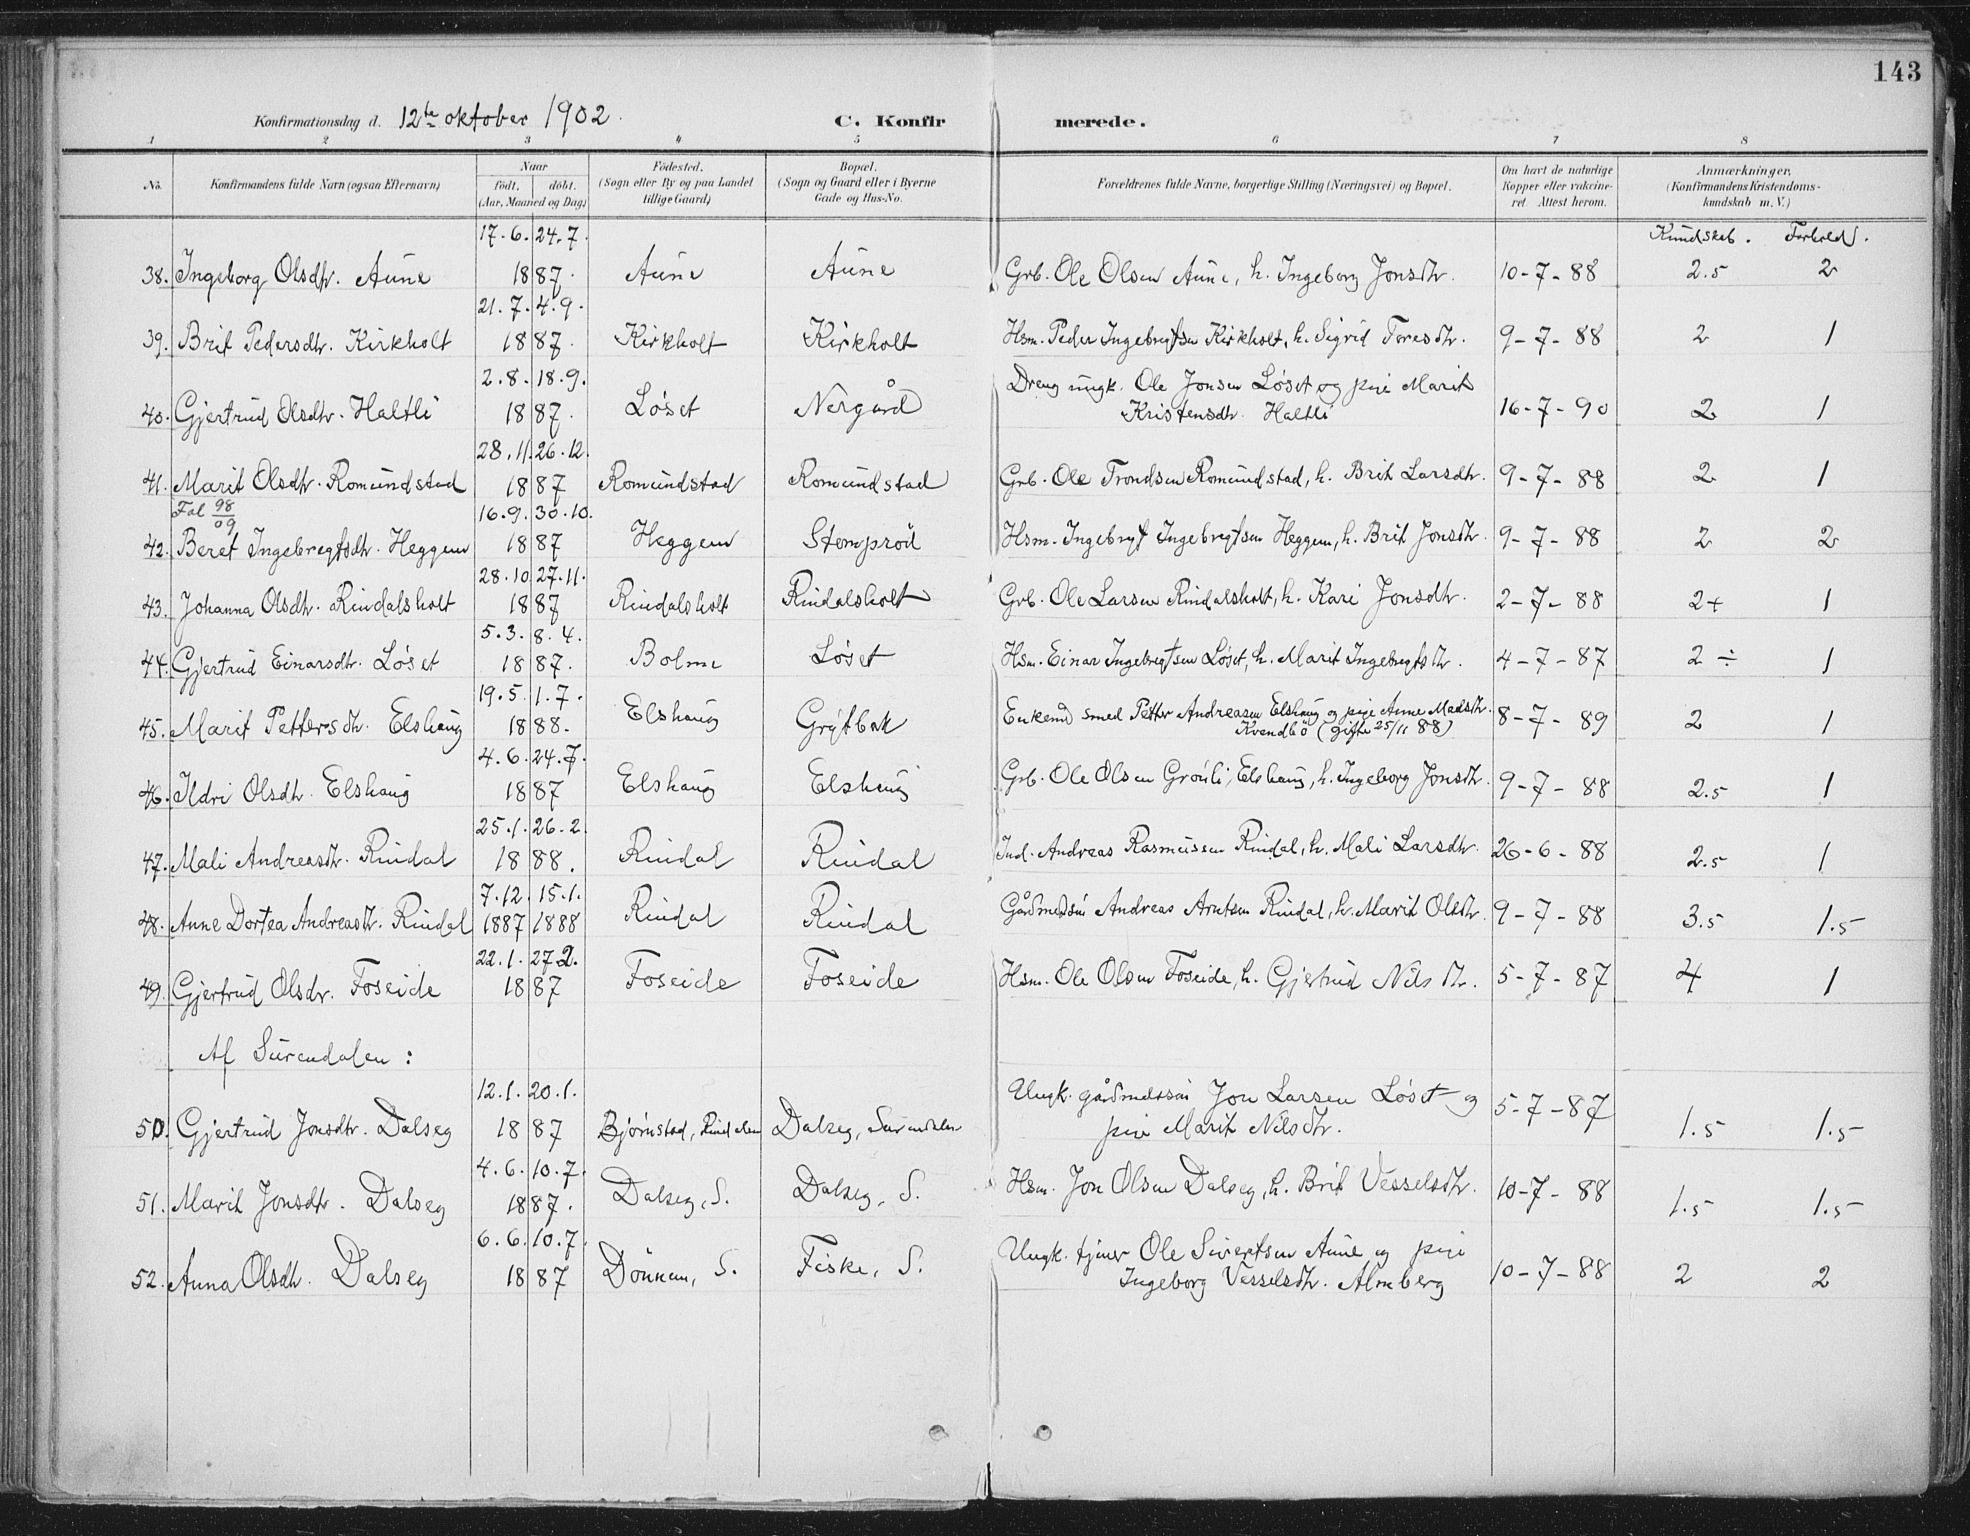 143
Konfirmationsdag d. 12te oktober 1902. C. Konfirmerede.
1 2 3 4 5 6 7 8
No. Konfirmandens fulde Navn (ogsaa Efternavn) Naar født. døbt. (Aar, Maaned og Dag) Fødested. (Sogn eller By og paa Landet tillige Gaard) Bopæl. (Sogn og Gaard eller i Byerne Gade og Hus-No. Forældrenes fulde Navne, borgerlige Stilling (Næringsvei) og Bopæl. Om havt de naturlige Kopper eller vakcineret. Attest herom. Anmærkninger. (Konfirmandens Kristendomskundskab m. V.)
Kundskab. Forhold.
17.6. 24.7.
38. Ingeborg Olsdtr. Aune 1887. Aune Aune Grb. Ole Olsen Aune, h. Ingeborg Jonsdtr. 10-7-88 2.5 2
21.7. 4.9.
39. Brit Pedersdtr. Kirkholt 1887. Kirkholt Kirkholt Hsm. Peder Ingebregtsen Kirkholt, h. Sigrid Toresdtr. 9-7-88 2 1
2.8. 18.9. Dreng ungk. Ole Jonsen Løset og pige Marit
40. Gjertrud Olsdtr. Haltli 1887. Løset Nergård Kristensdtr. Haltli 16-7-90 2 1
28.11. 26.12.
41. Marit Olsdtr. Romundstad 1887 Romundstad Romundstad Grb. Ole Trondsen Romundstad, h. Brit Larsdtr. 9-7-88 2 1
Fol 98/09 16.9. 30.10.
42. Beret Ingebregtsdtr. Heggem 1887 Heggem Stomprød Hsm. Ingebregt Ingebregtsen Heggem, h. Brit Jonsdtr. 9-7-88 2 2
28.10 27.11.
43. Johanna Olsdtr. Rindalsholt 1887 Rindalsholt Rindalsholt Grb. Ole Larsen Rindalsholt, h. Kari Jonsdtr. 2-7-88 2+ 1
5.3. 8.4.
44. Gjertrud Einarsdtr. Løset 1887. Bolme Løset Hsm. Einar Ingebregtsen Løset, h. Marit Ingebregtsdtr. 4-7-87 2 ÷ 1
19.5. 1.7. Enkemd smed Petter Andreasen Elshaug og pige Anne Madsdtr.
45. Marit Pettersdtr. Elshaug 1888. Elshaug Grytbak Kvendbö (gifte 25/11 88) 8-7-89 2 1
4.6. 24.7.
46. Ildri Olsdtr. Elshaug 1887 Elshaug Elshaug Grb. Ole Olsen Grönli, Elshaug, h. Ingeborg Jonsdtr. 9-7-88 2.5 1
25.1. 26.2.
47. Mali Andreasdtr. Rindal 1888. Rindal Rindal Ind. Andreas Rasmussen Rindal, h. Mali Larsdtr. 26-6-88 2.5 1
7.12. 15.1.
48. Anne Dortea Andreasdtr. Rindal 1887 1888 Rindal Rindal Gårdmdssøn Andreas Arntsen Rindal, h. Marit Olsdtr. 9-7-88 3.5 1.5
22.1. 27 2.
49. Gjertrud Olsdr. Foseide 1887 Foseide Foseide Hsm. Ole Olsen Foseide, h. Gjertrud Nilsdtr. 5-7-87 4 1
Af Surendalen:
12.1. 20.1. Ungk. gårdmdssøn Jon Larsen Løset og
50. Gjertrud Jonsdtr. Dalseg 1887 Bjørnstad, Rindalen Dalseg, Surendalen pige Marit Nilsdtr. 5-7-87 1.5 1.5
4.6. 10.7.
51. Marit Jonsdtr. Dalseg 1887. Dalseg, S. Dalseg, S. Hsm. Jon Olsen Dalseg, h. Brit Vesselsdtr. 10-7-88 1.5 1.5
6.6. 10.7. Ungk. tjener Ole Sivertsen Aune og pige
52. Anna Olsdtr. Dalseg 1887 Dönnem, S. Fiske, S. Ingeborg Vesselsdtr. Almberg 10-7-88 2 2